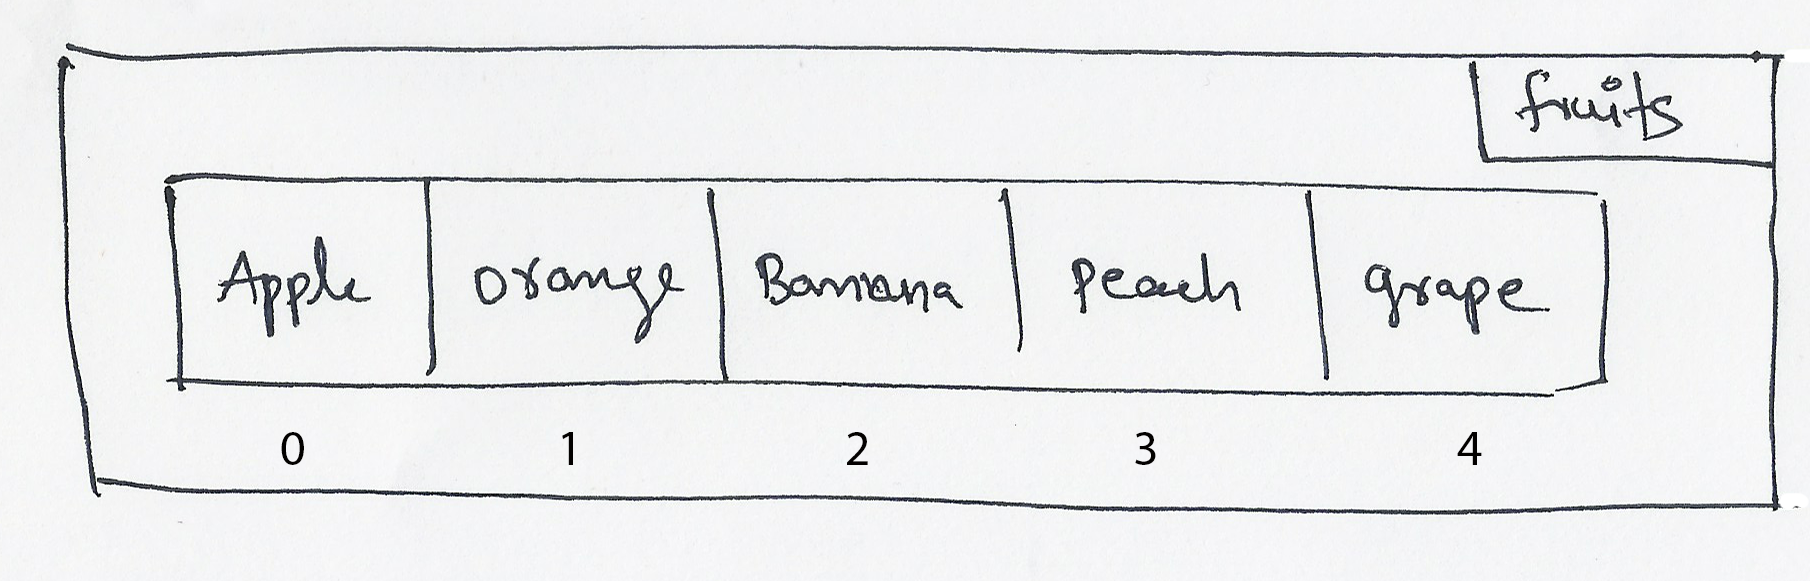 fruits
Apple orange Banana Peach grape
0 1 2 3 4